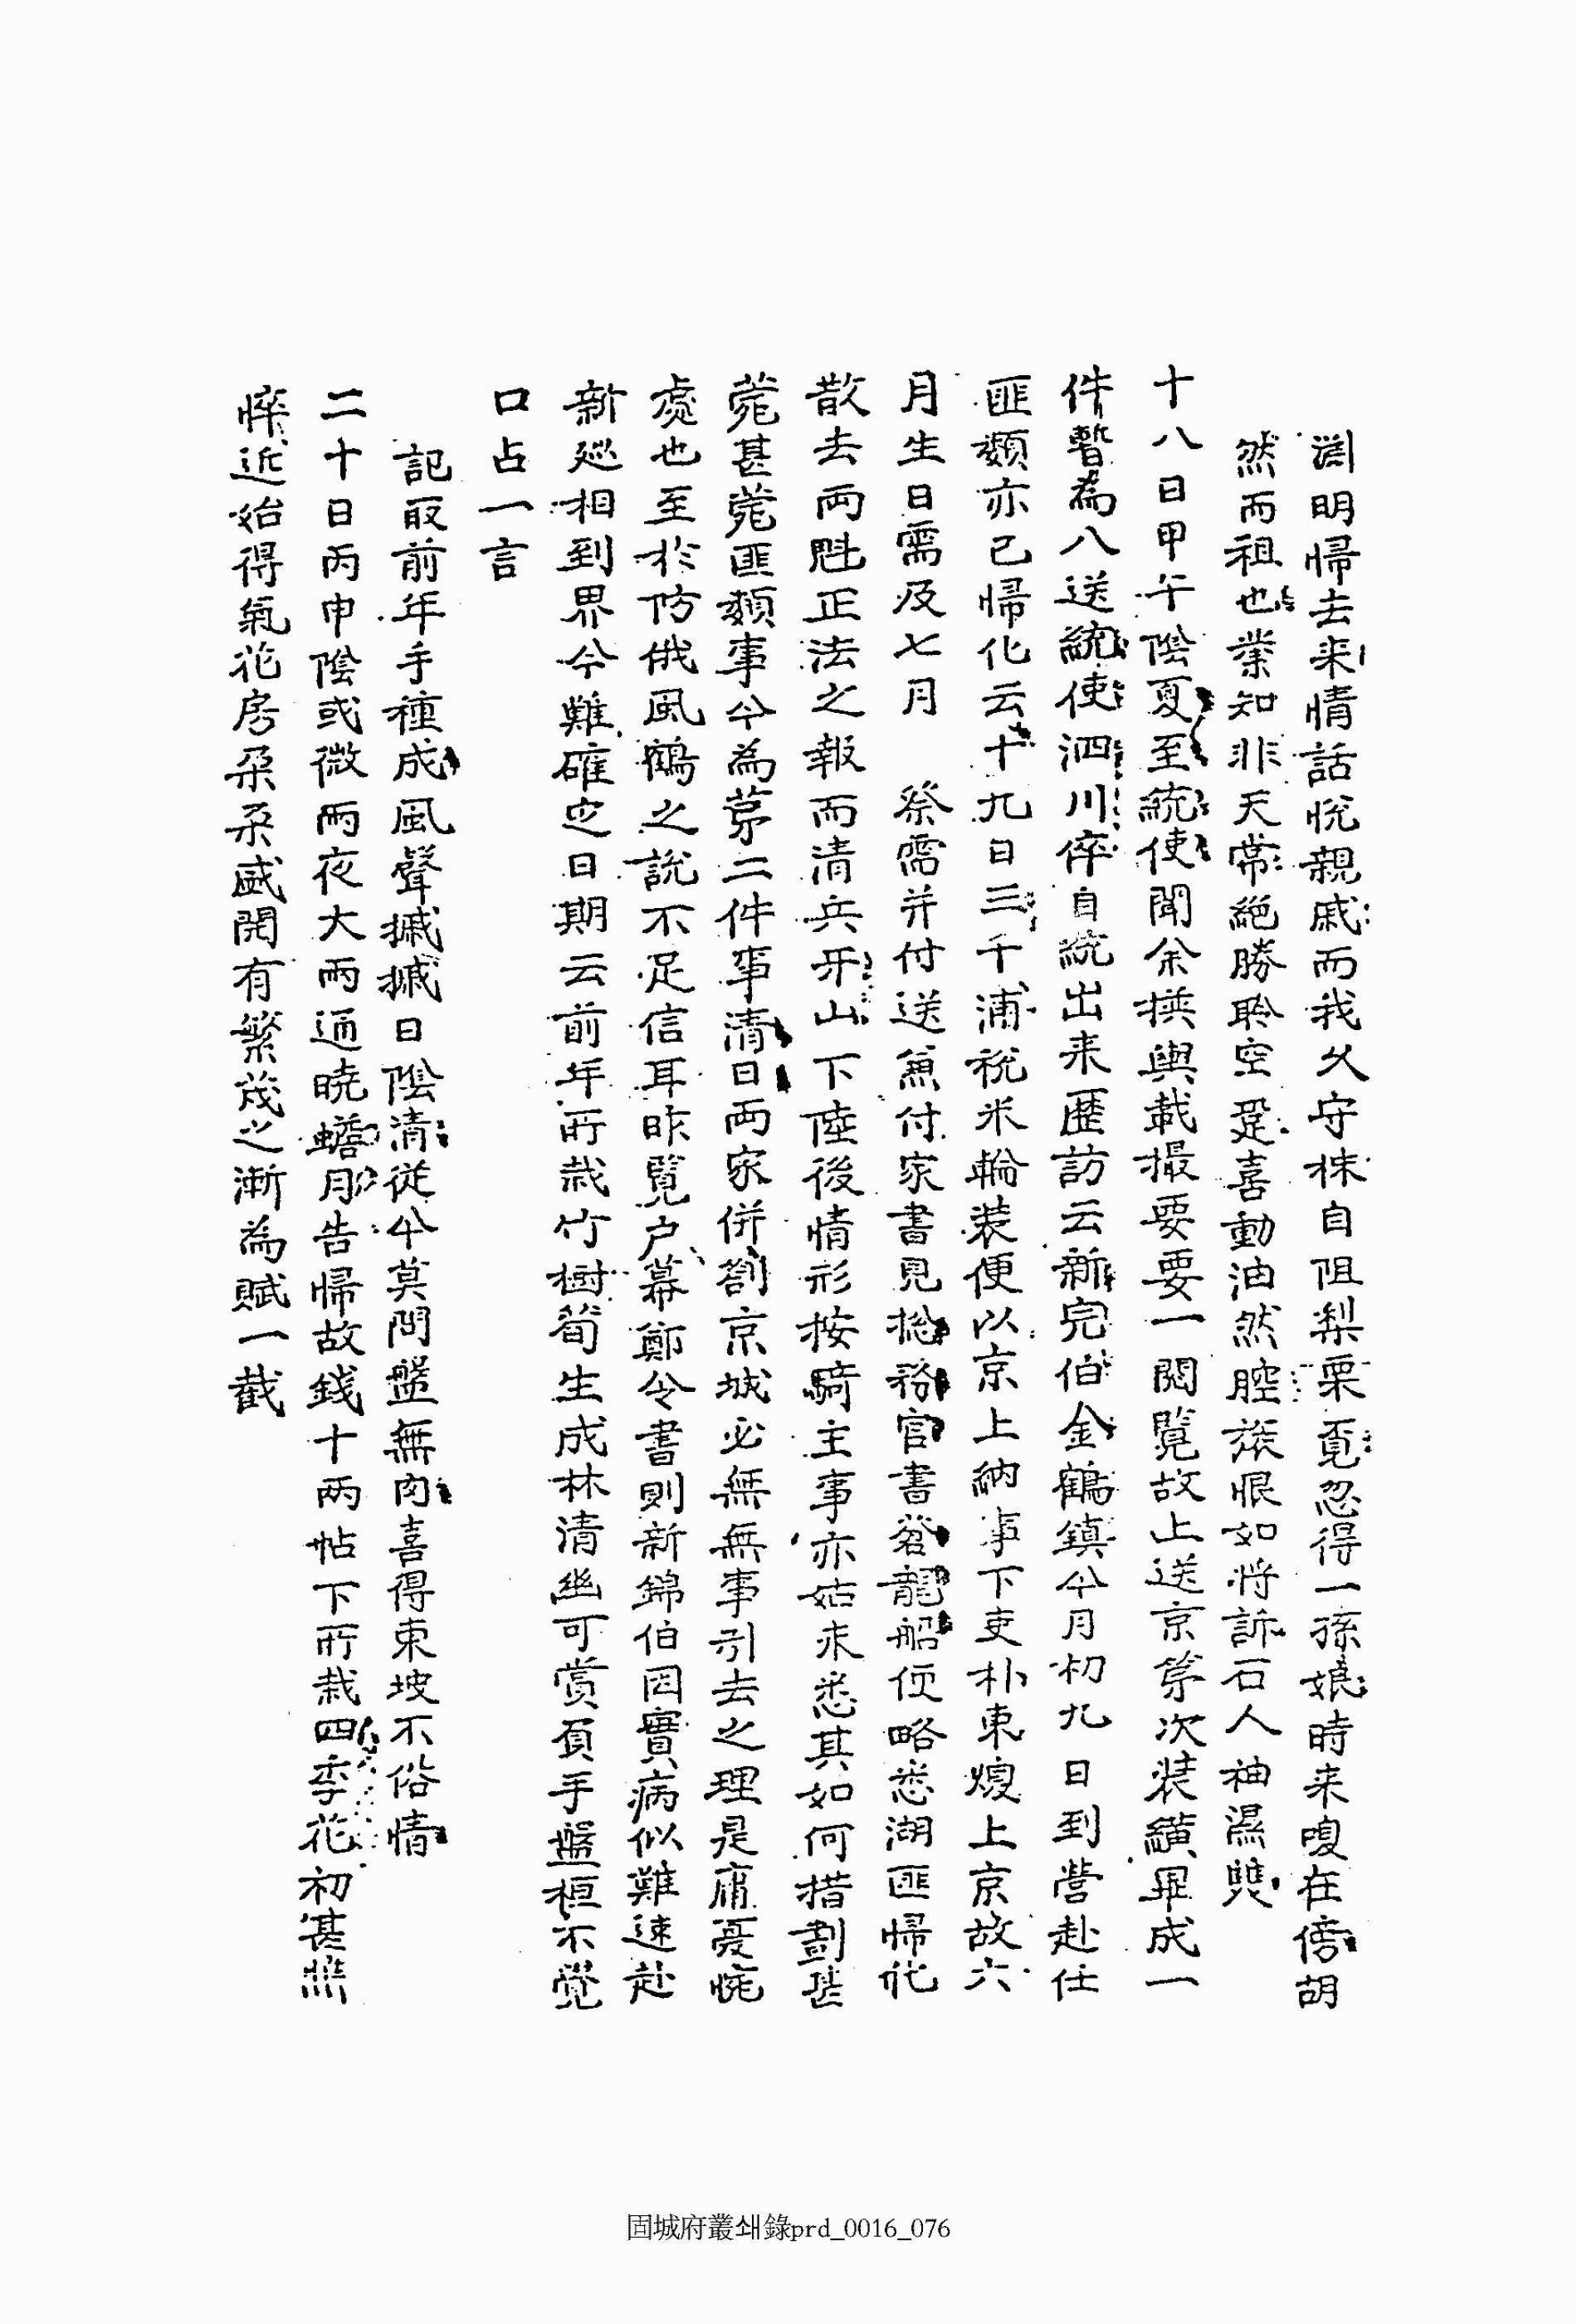 淵明歸去来情話悅親戚而我久守株自阻梨栗覓忍得一孫娘時来嗄在傍胡
然而祖也業知非天常絶勝聆空跫喜動油然腔旅恨如將訴石人袖濕雙
十八日甲午陰夏至統使聞余撗輿載撮要要一閱覧故上送京第次裝䌙畢成一
件暫為八送統使泗川倅自統出来歷訪云新完伯金鶴鎮今月初九日到營赴任
匪類亦已歸化云十九日三千浦稅米輪裝便以京上納事下吏朴東煥上京故六
月生日需及七月 祭需并付送兼付家書見揔務官書蒼龍船便略悉湖匪歸化
散去両魁正法之報而清兵牙山下陸後情形按騎主事亦姑未悉其如何措劃甚
菀甚菀匪類事今為苐二件事清日両家併劄京城必無無事引去之理是庸憂慌
處也至於防俄風鶴之說不足信耳昨覧户幕鄭令書則新錦伯因實病似難速赴
新廵相到界今難確定日期云前年所栽竹樹筍生成林清幽可賞負手盤桓不覺
口占一言
記取前年手種成風聲摵摵日陰清從今莫問盤無肉喜得東坡不俗情
二十日丙申陰或微雨夜大雨通曉蟾彤告歸故錢十両帖下所栽四季花初甚憔
悴近始得氣花房朶朶盛開有繁茂之漸為賦一截
固城府叢쇄錄prd_0016_076